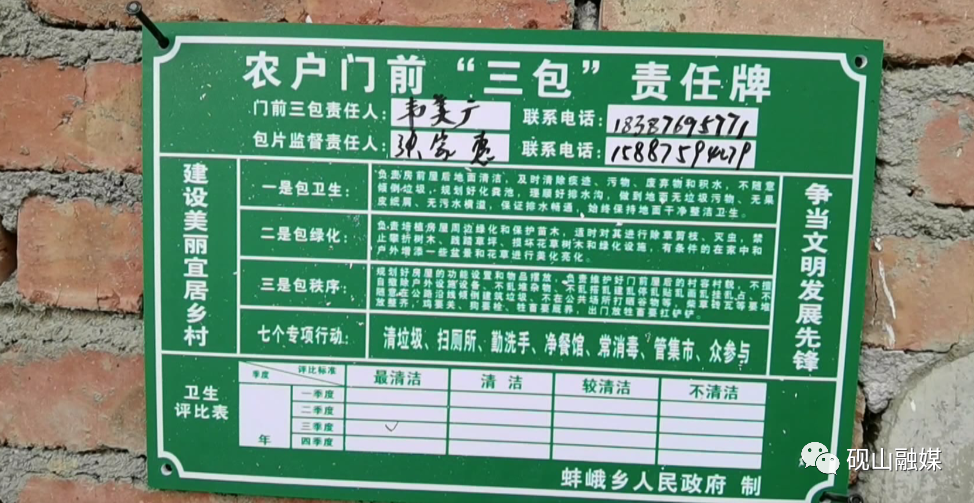 农户门前“三包”责任牌
门前三包责任人：韦美广 联系电话：18387695771
包片监督责任人： 联系电话：15887594279
建设美丽宜居乡村
一是包卫生：
负责房前屋后地面清洁，及时清除痰迹、污物、废弃物和积水，不随意
倾倒垃圾，规划好化粪池，理顺好排水沟，做到地面无垃圾污物、无果
皮纸屑、无污水横溢，保证排水畅通，始终保持地面干净整洁卫生。
二是包绿化：
负责培植房屋周边绿化和保护苗木，适时对其进行除草剪枝、灭虫，禁
止攀折树木、践踏草坪、损坏花草树木和绿化设施，有条件的在家中和
户外增添一些盆景和花草进行美化亮化。
三是包秩序：
规划好房屋的功能设置和物品摆放，负责维护好门前屋后的村容村貌，不擅
自棚除户外设施设备、不乱堆杂物、不乱搭乱建乱停乱贴乱画乱挂乱占，不
随意在公路沿线倾倒建筑垃圾，不在公共场所打晒谷物等，
放整齐，鸡要关、狗要栓、牲畜要厩养，出门放牲畜要扛铲铲。
七个专项行动：
清垃圾、扫厕所、勤洗手、净餐馆、常消毒、管集市、众参与
争当文明发展先锋
卫生
评比表
季度 评比标准 最清洁 清洁 较清洁 不清洁
年
一季度
二季度
三季度 ✓
四季度
蚌峨乡人民政府 制
砚山融媒